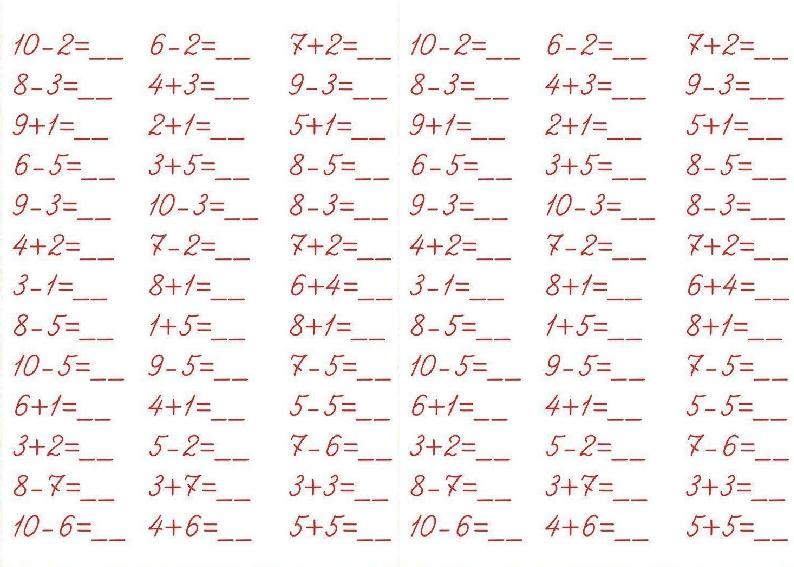 10-2=__ 6-2=__ 7+2=__ 10-2=__ 6-2=__ 7+2=__
8-3=__ 4+3=__ 9-3=__ 8-3=__ 4+3=__ 9-3=__
9+1=__ 2+1=__ 5+1=__ 9+1=__ 2+1=__ 5+1=__
6-5=__ 3+5=__ 8-5=__ 6-5=__ 3+5=__ 8-5=__
9-3=__ 10-3=__ 8-3=__ 9-3=__ 10-3=__ 8-3=__
4+2=__ 7-2=__ 7+2=__ 4+2=__ 7-2=__ 7+2=__
3-1=__ 8+1=__ 6+4=__ 3-1=__ 8+1=__ 6+4=__
8-5=__ 1+5=__ 8+1=__ 8-5=__ 1+5=__ 8+1=__
10-5=__ 9-5=__ 7-5=__ 10-5=__ 9-5=__ 7-5=__
6+1=__ 4+1=__ 5-5=__ 6+1=__ 4+1=__ 5-5=__
3+2=__ 5-2=__ 7-6=__ 3+2=__ 5-2=__ 7-6=__
8-7=__ 3+7=__ 3+3=__ 8-7=__ 3+7=__ 3+3=__
10-6=__ 4+6=__ 5+5=__ 10-6=__ 4+6=__ 5+5=__